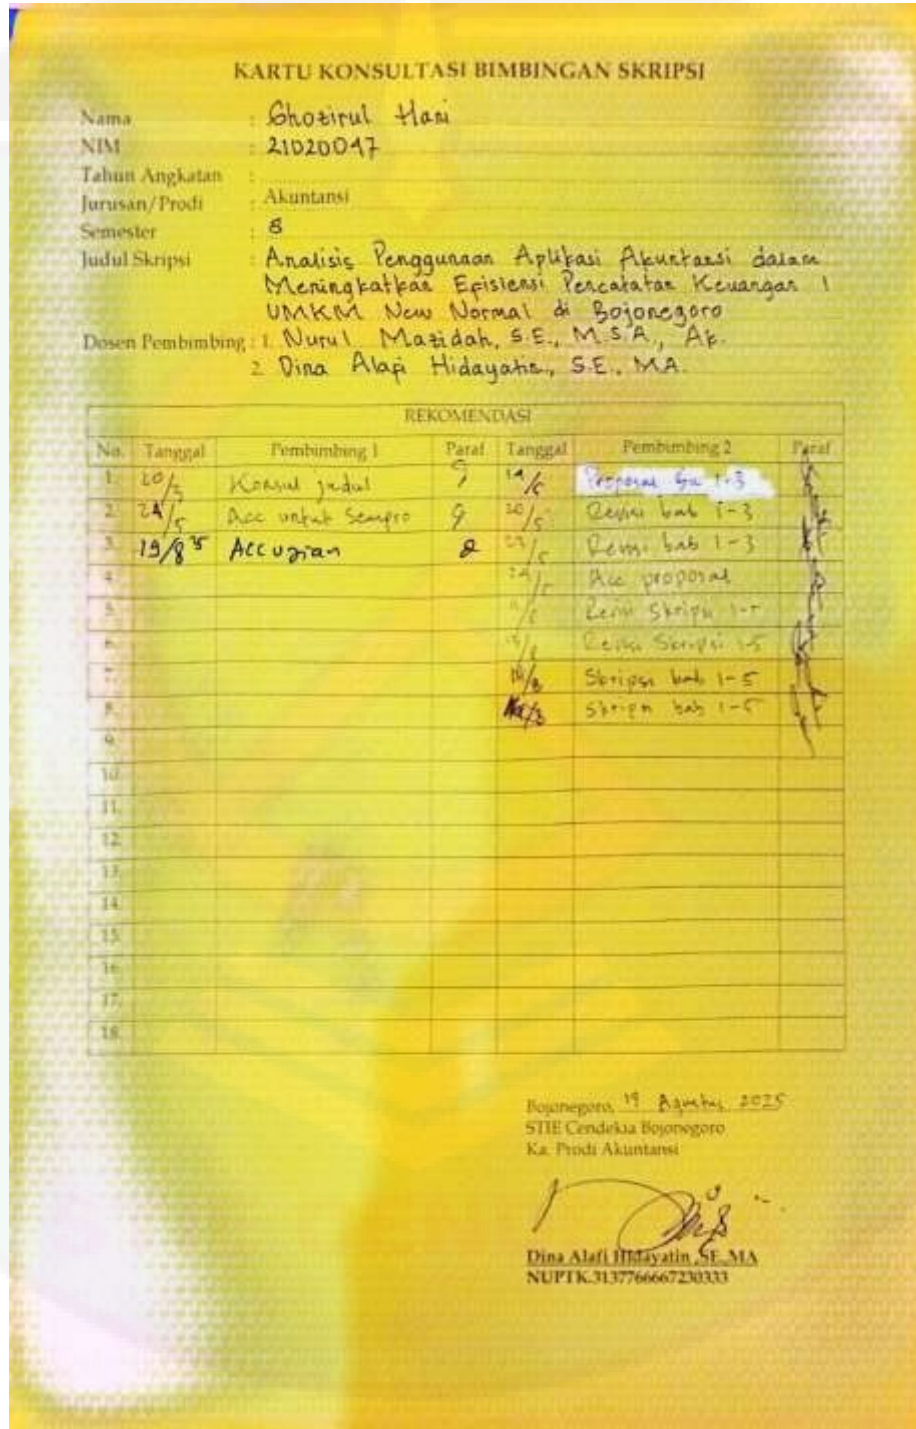 KARTU KONSULTASI BIMBINGAN SKRIPSI
Nama : Ghozirul Hani
NIM : 21020047
Tahun Angkatan :
Jurusan/Prodi : Akuntansi
Semester : 8
Judul Skripsi : Analisis Penggunaan Aplikasi Akuntansi dalam
Meningkatkan Efisiensi Pencatatan Keuangan
UMKM New Normal di Bojonegoro
Dosen Pembimbing : 1. Nurul Mazidah, S.E., M.S.A., Ak.
2. Dina Alafi Hidayatin., S.E., MA.
REKOMENDASI
No. Tanggal Pembimbing 1 Paraf Tanggal Pembimbing 2 Paraf
1. Konsul judul Proposal 1-3
2. 24/5 Acc untuk Sempro 20/5 Revisi bab 1-3
3. 19/8 25 Acc ujian Revisi bab 1-3
4. Acc proposal
5. Revisi Skripsi
6. Revisi Skripsi 1-5
7. Skripsi bab 1-5
8. Skripsi bab 1-5
9.
10.
11.
12.
13.
14.
15.
16.
17.
18.
Bojonegoro, 19 Agustus 2025
STIE Cendekia Bojonegoro
Ka. Prodi Akuntansi
Dina Alafi Hidayatin ,SE.,MA
NUPTK.3137766667230333